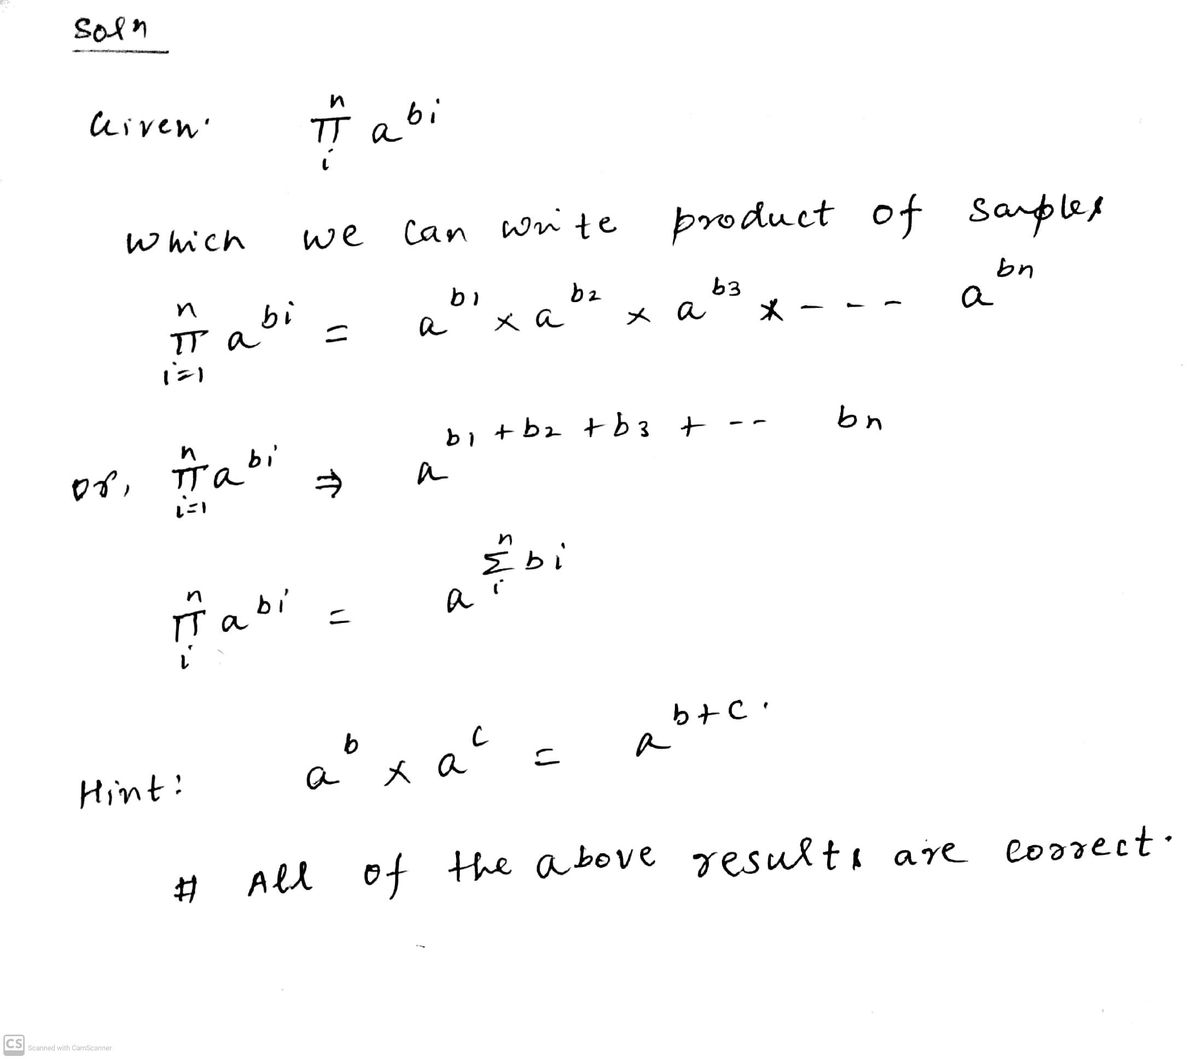 Soln
Given.    n π i a^bi
which we can write product of samples
n π i=1 a^bi = a^b1 × a^b2 × a^b3 × - - - a^bn
or, n π i=1 a^bi ⇒ a^b1 + b2 + b3 + - - bn
n π i a^bi = a^n Σ i bi
Hint: a^b × a^c = a^b+c.
# All of the above results are correct.
CS Scanned with CamScanner